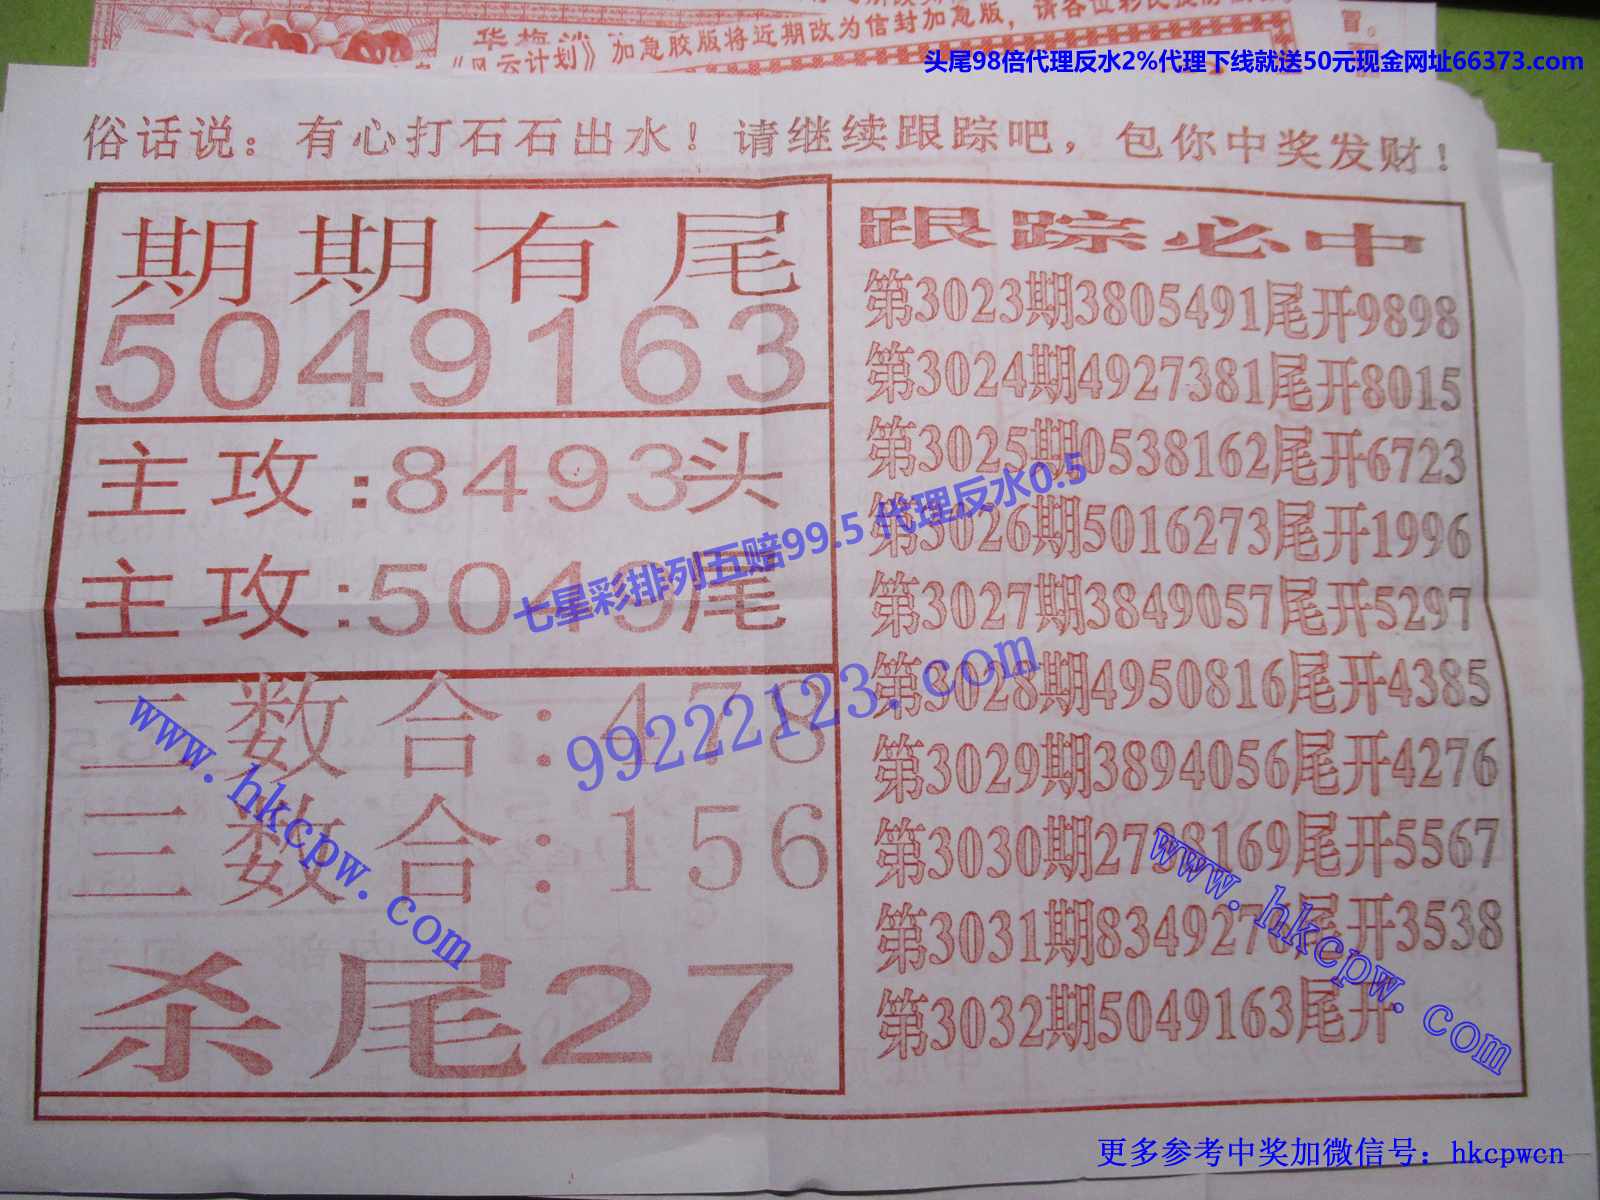 《风云计划》加急胶版将近期改为信封加急版，请各位彩民提防
头尾98倍代理反水2%代理下线就送50元现金网址66373.com
俗话说：有心打石石出水！请继续跟踪吧，包你中奖发财！
期期有尾
5049163
主攻:8493头
主攻:5049尾
二数合:478
三数合:156
杀尾27
跟踪必中
第3023期3805491尾开9898
第3024期4927381尾开8015
第3025期0538162尾开6723
第3026期5016273尾开1996
第3027期3849057尾开5297
第3028期4950816尾开4385
第3029期3894056尾开4276
第3030期2738169尾开5567
第3031期8349276尾开3538
第3032期5049163尾开
七星彩排列五赔99.5 代理反水0.5
99222123.com
www.hkcpw.com
www.hkcpw.com
更多参考中奖加微信号：hkcpwcn